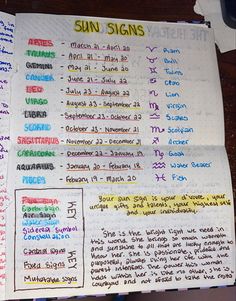 SUN SIGNS
ARIES - March 21 - April 20 Ram
TAURUS - April 21 - May 20 Bull
GEMINI - May 21 - June 20 Twins
CANCER - June 21 - July 22 Crab
LEO - July 23 - August 22 Lion
VIRGO - August 23 - September 22 Virgin
LIBRA - September 23 - October 22 Scales
SCORPIO - October 23 - November 21 Scorpion
SAGITTARIUS - November 22 - December 21 Archer
CAPRICORN - December 22 - January 19 Goat
AQUARIUS - January 20 - February 18 Water Bearer
PISCES - February 19 - March 20 Fish
KEY
Fire sign
Earth sign
Air sign
Water sign
Sidereal symbol
Constellation
KEY
Cardinal signs
Fixed signs
Mutable signs
Your sun sign is your identity, your
unique gifts and talents, your highest self
and your individuality.
She is the bright light we need in
this world. She brings so much warmth
and sunshine to all that are lucky enough to
know her. She is passionate, playful and
She is often the
purest intention. The power
held within her is like no other, she is
courageous and not afraid to take the